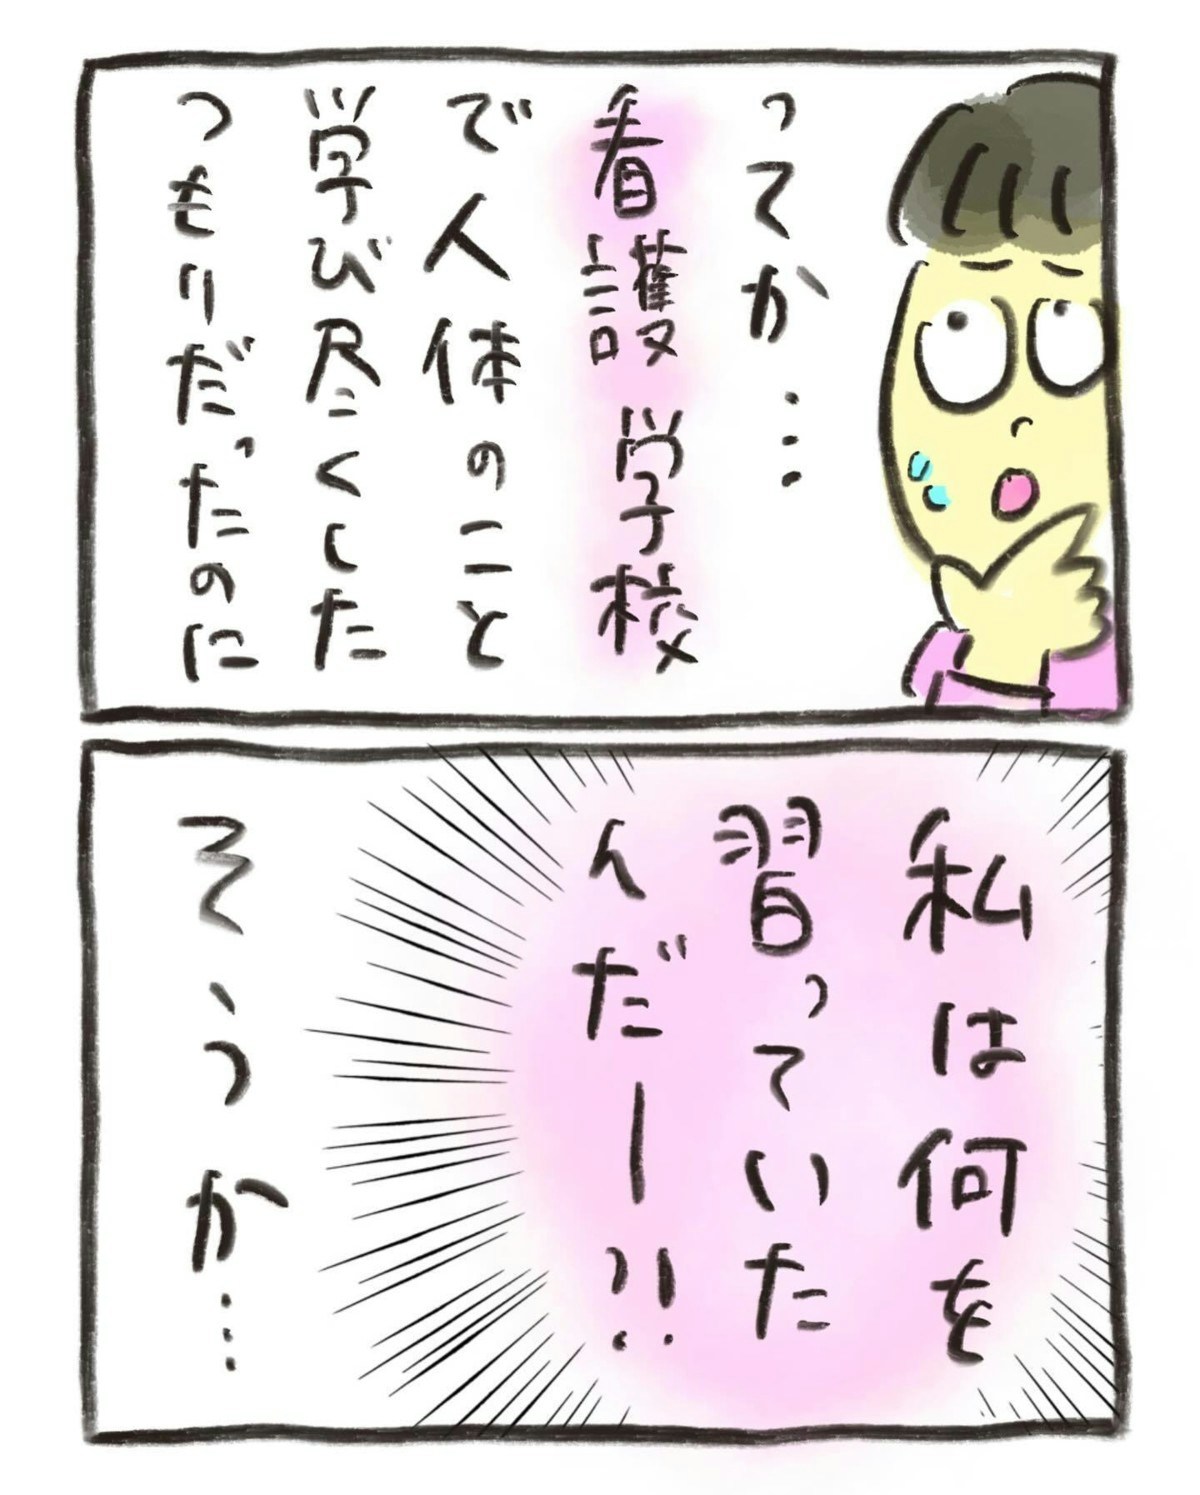 ってか…
看護学校
で人体のこと
学び尽くした
つもりだったのに
私は何を
習っていた
んだー?!
そうか…